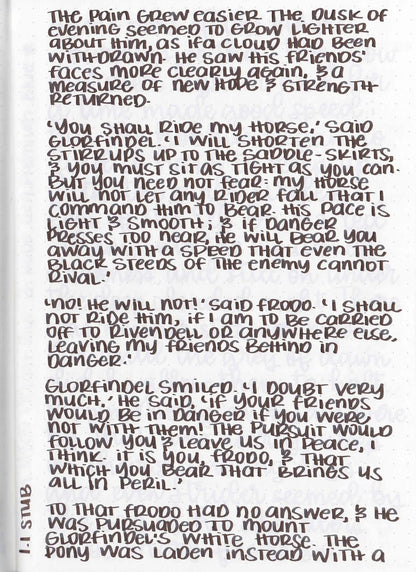 THE PAIN GREW EASIER THE DUSK OF
EVENING SEEMED TO GROW LIGHTER
ABOUT HIM, AS IF A CLOUD HAD BEEN
WITHDRAWN. HE SAW HIS FRIENDS'
FACES MORE CLEARLY AGAIN, & A
MEASURE OF NEW HOPE & STRENGTH
RETURNED.
'YOU SHALL RIDE MY HORSE,' SAID
GLORFINDEL. 'I WILL SHORTEN THE
STIRRUPS UP TO THE SADDLE-SKIRTS,
& YOU MUST SIT AS TIGHT AS YOU CAN.
BUT YOU NEED NOT FEAR: MY HORSE
WILL NOT LET ANY RIDER FALL THAT I
COMMAND HIM TO BEAR. HIS PACE IS
LIGHT & SMOOTH; & IF DANGER
PRESSES TOO NEAR, HE WILL BEAR YOU
AWAY WITH A SPEED THAT EVEN THE
BLACK STEEDS OF THE ENEMY CANNOT
RIVAL.'
'NO! HE WILL NOT!' SAID FRODO. 'I SHALL
NOT RIDE HIM, IF I AM TO BE CARRIED
OFF TO RIVENDELL OR ANYWHERE ELSE,
LEAVING MY FRIENDS BEHIND IN
DANGER.'
GLORFINDEL SMILED. 'I DOUBT VERY
MUCH,' HE SAID, 'IF YOUR FRIENDS
WOULD BE IN DANGER IF YOU WERE
NOT WITH THEM! THE PURSUIT WOULD
FOLLOW YOU & LEAVE US IN PEACE, I
THINK. IT IS YOU, FRODO, & THAT
WHICH YOU BEAR THAT BRINGS US
ALL IN PERIL.'
TO THAT FRODO HAD NO ANSWER, & HE
WAS PURSUADED TO MOUNT
GLORFINDEL'S WHITE HORSE. THE
PONY WAS LADEN INSTEAD WITH A
1.1 STUB